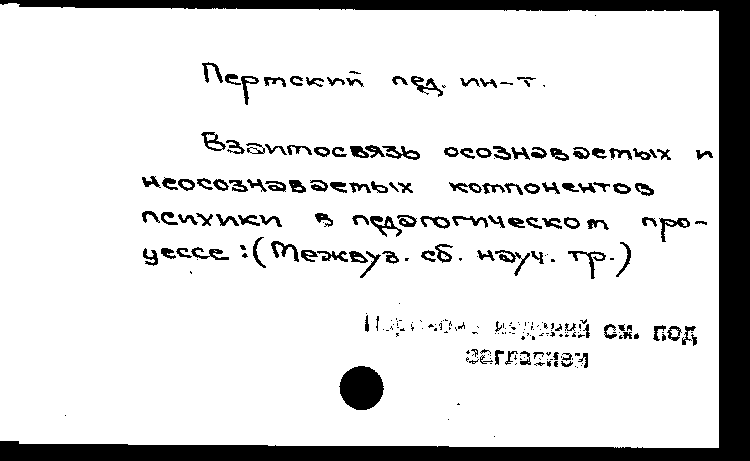 Пермский пед. ин-т.
Взаимосвязь осознаваемых и
неосознаваемых компонентов
психики в педагогическом про-
цессе :(Межвуз. сб. науч. тр.)
изданий см. под
заглавием